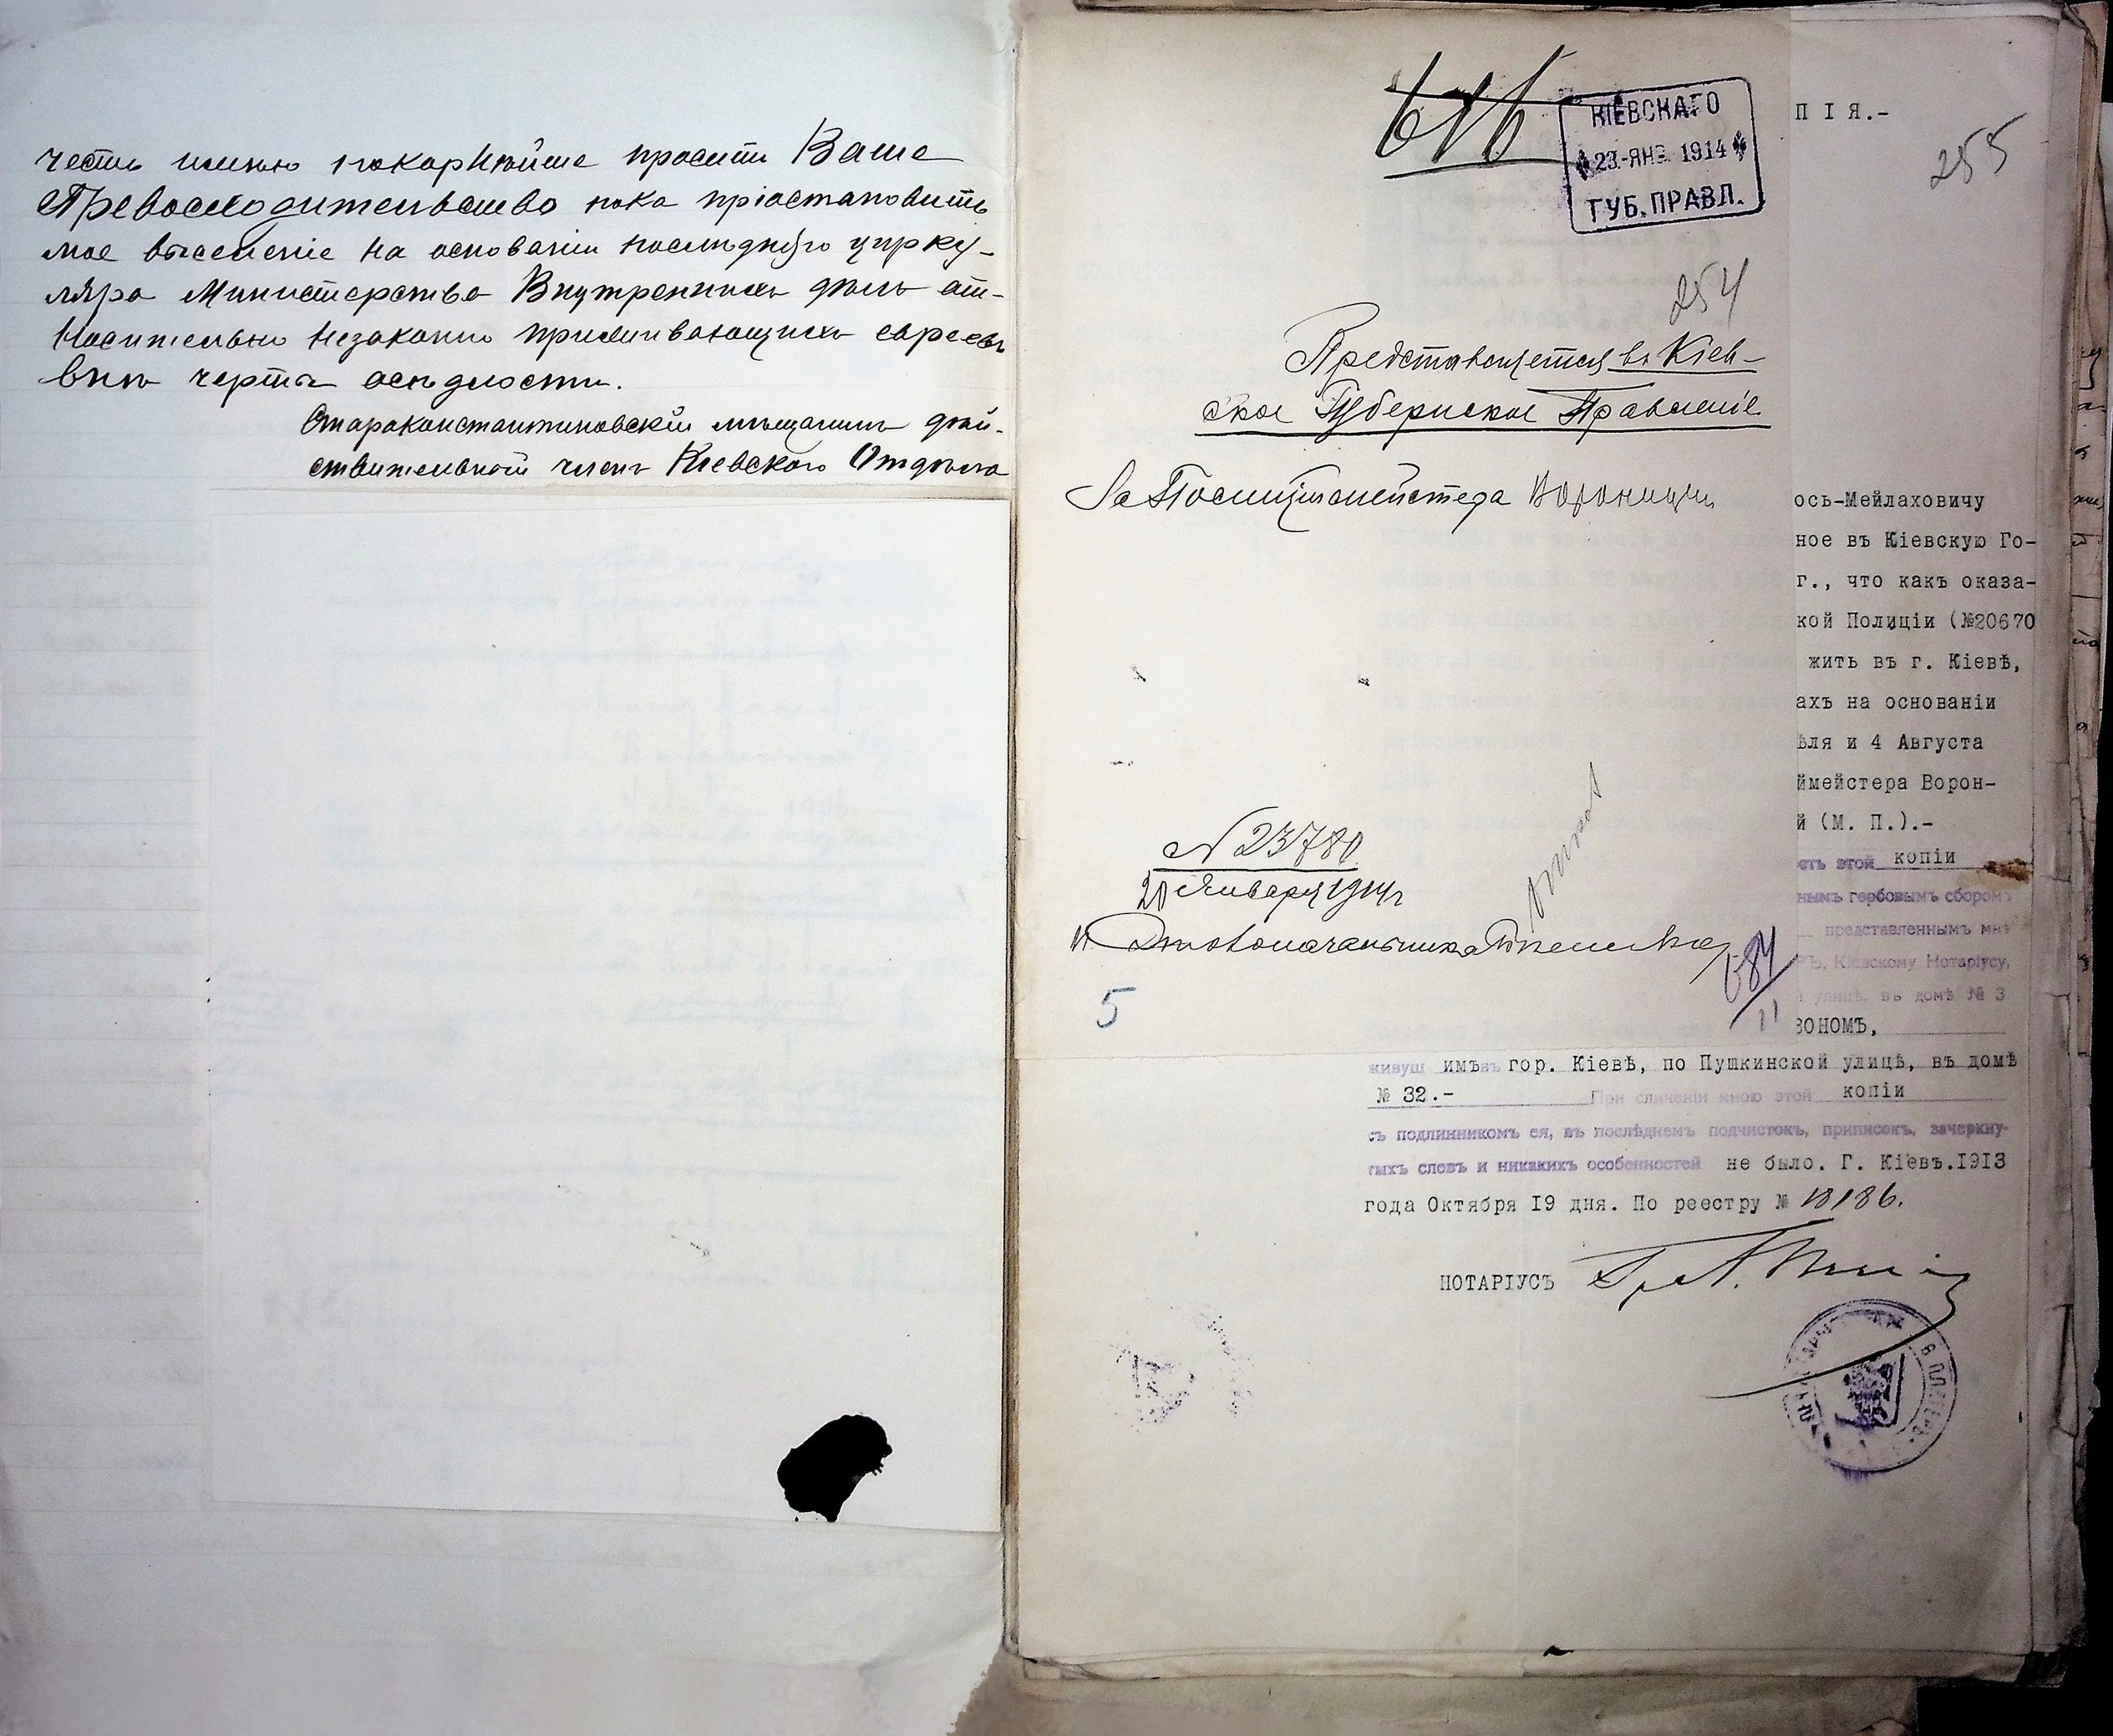 честь имѣю покорнѣйше просить Ваше
Превосходительство пока пріостановить
мое выселеніе на основаніи послѣдняго цирку-
ляра Министерства Внутреннихъ дѣлъ от-
носительно незаконно проживающихъ евреевъ
внѣ черты осѣдлости.
Староконстантиновскій мѣщанинъ дѣй-
ствительный членъ Кіевскаго Отдѣла
КІЕВСКАГО
23-ЯНВ. 1914
ГУБ. ПРАВЛ.
254
Представляется въ Кіев-
ское Губернское Правленіе
За Полиціймейстера
N 23780
20 Января 1914 г
Столоначальника
5
684
11
ПІЯ.-
255
ось-Мейлаховичу
ное въ Кіевскую Го-
г., что какъ оказа-
кой Полиціи (№20670
жить въ г. Кіевѣ,
ахъ на основаніи
ѣля и 4 Августа
ймейстера Ворон-
й (М. П.).-
сть этой копіи
нымъ гербовымъ сборомъ
представленнымъ мнѣ
РЪ, Кіевскому Нотаріусу,
й улицѣ, въ домѣ № 3
ЗОНОМЪ,
живущ имъ въ гор. Кіевѣ, по Пушкинской улицѣ, въ домѣ
№ 32.- При сличеніи мною этой копіи
съ подлинникомъ ея, въ послѣднемъ подчистокъ, приписокъ, зачеркну-
тыхъ словъ и никакихъ особенностей не было. Г. Кіевъ.1913
года Октября 19 дня. По реестру № 18186.
НОТАРІУСЪ